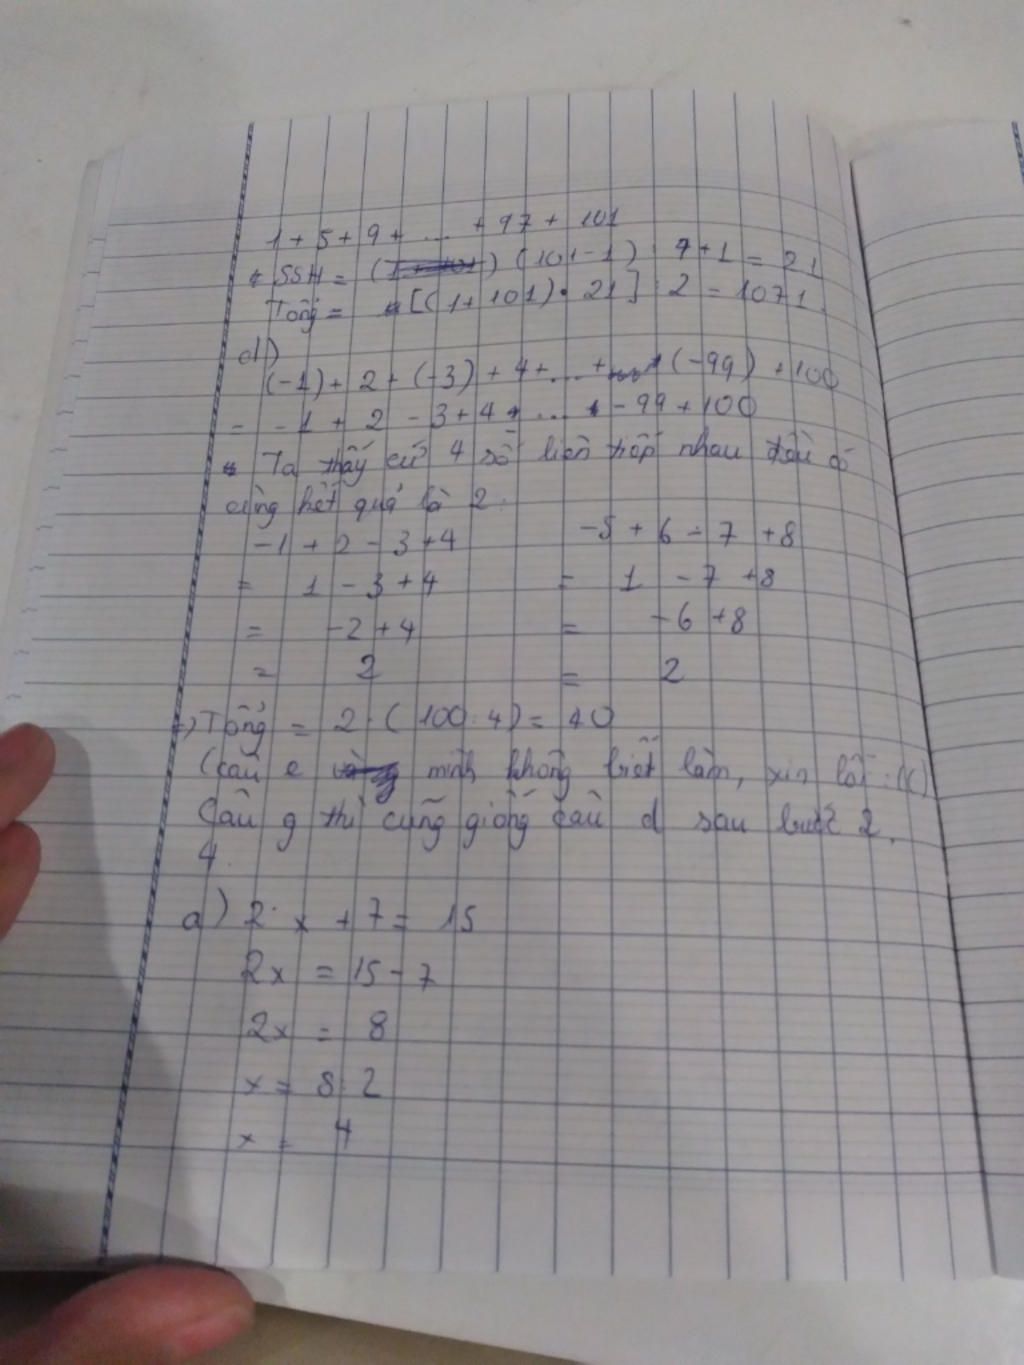 1 + 5 + 9 + ... + 97 + 101
SSH = (101 - 1) : 4 + 1 = 21
Tổng = [(1 + 101) . 21] : 2 = 1071
d)
(-1) + 2 + (-3) + 4 + ... + (-99) + 100
= -1 + 2 - 3 + 4 + ... - 99 + 100
Ta thấy cứ 4 số liên tiếp nhau đều có
cùng kết quả là 2.
-1 + 2 - 3 + 4 -5 + 6 - 7 + 8
= 1 - 3 + 4 = 1 - 7 + 8
= -2 + 4 = -6 + 8
= 2 = 2
=) Tổng = 2 . (100 : 4) = 40
(câu e mình không biết làm, xin lỗi :(()
Câu g thì cũng giống câu d sau bước 2.
4.
a) 2 . x + 7 = 15
2x = 15 - 7
2x = 8
x = 8 : 2
x = 4